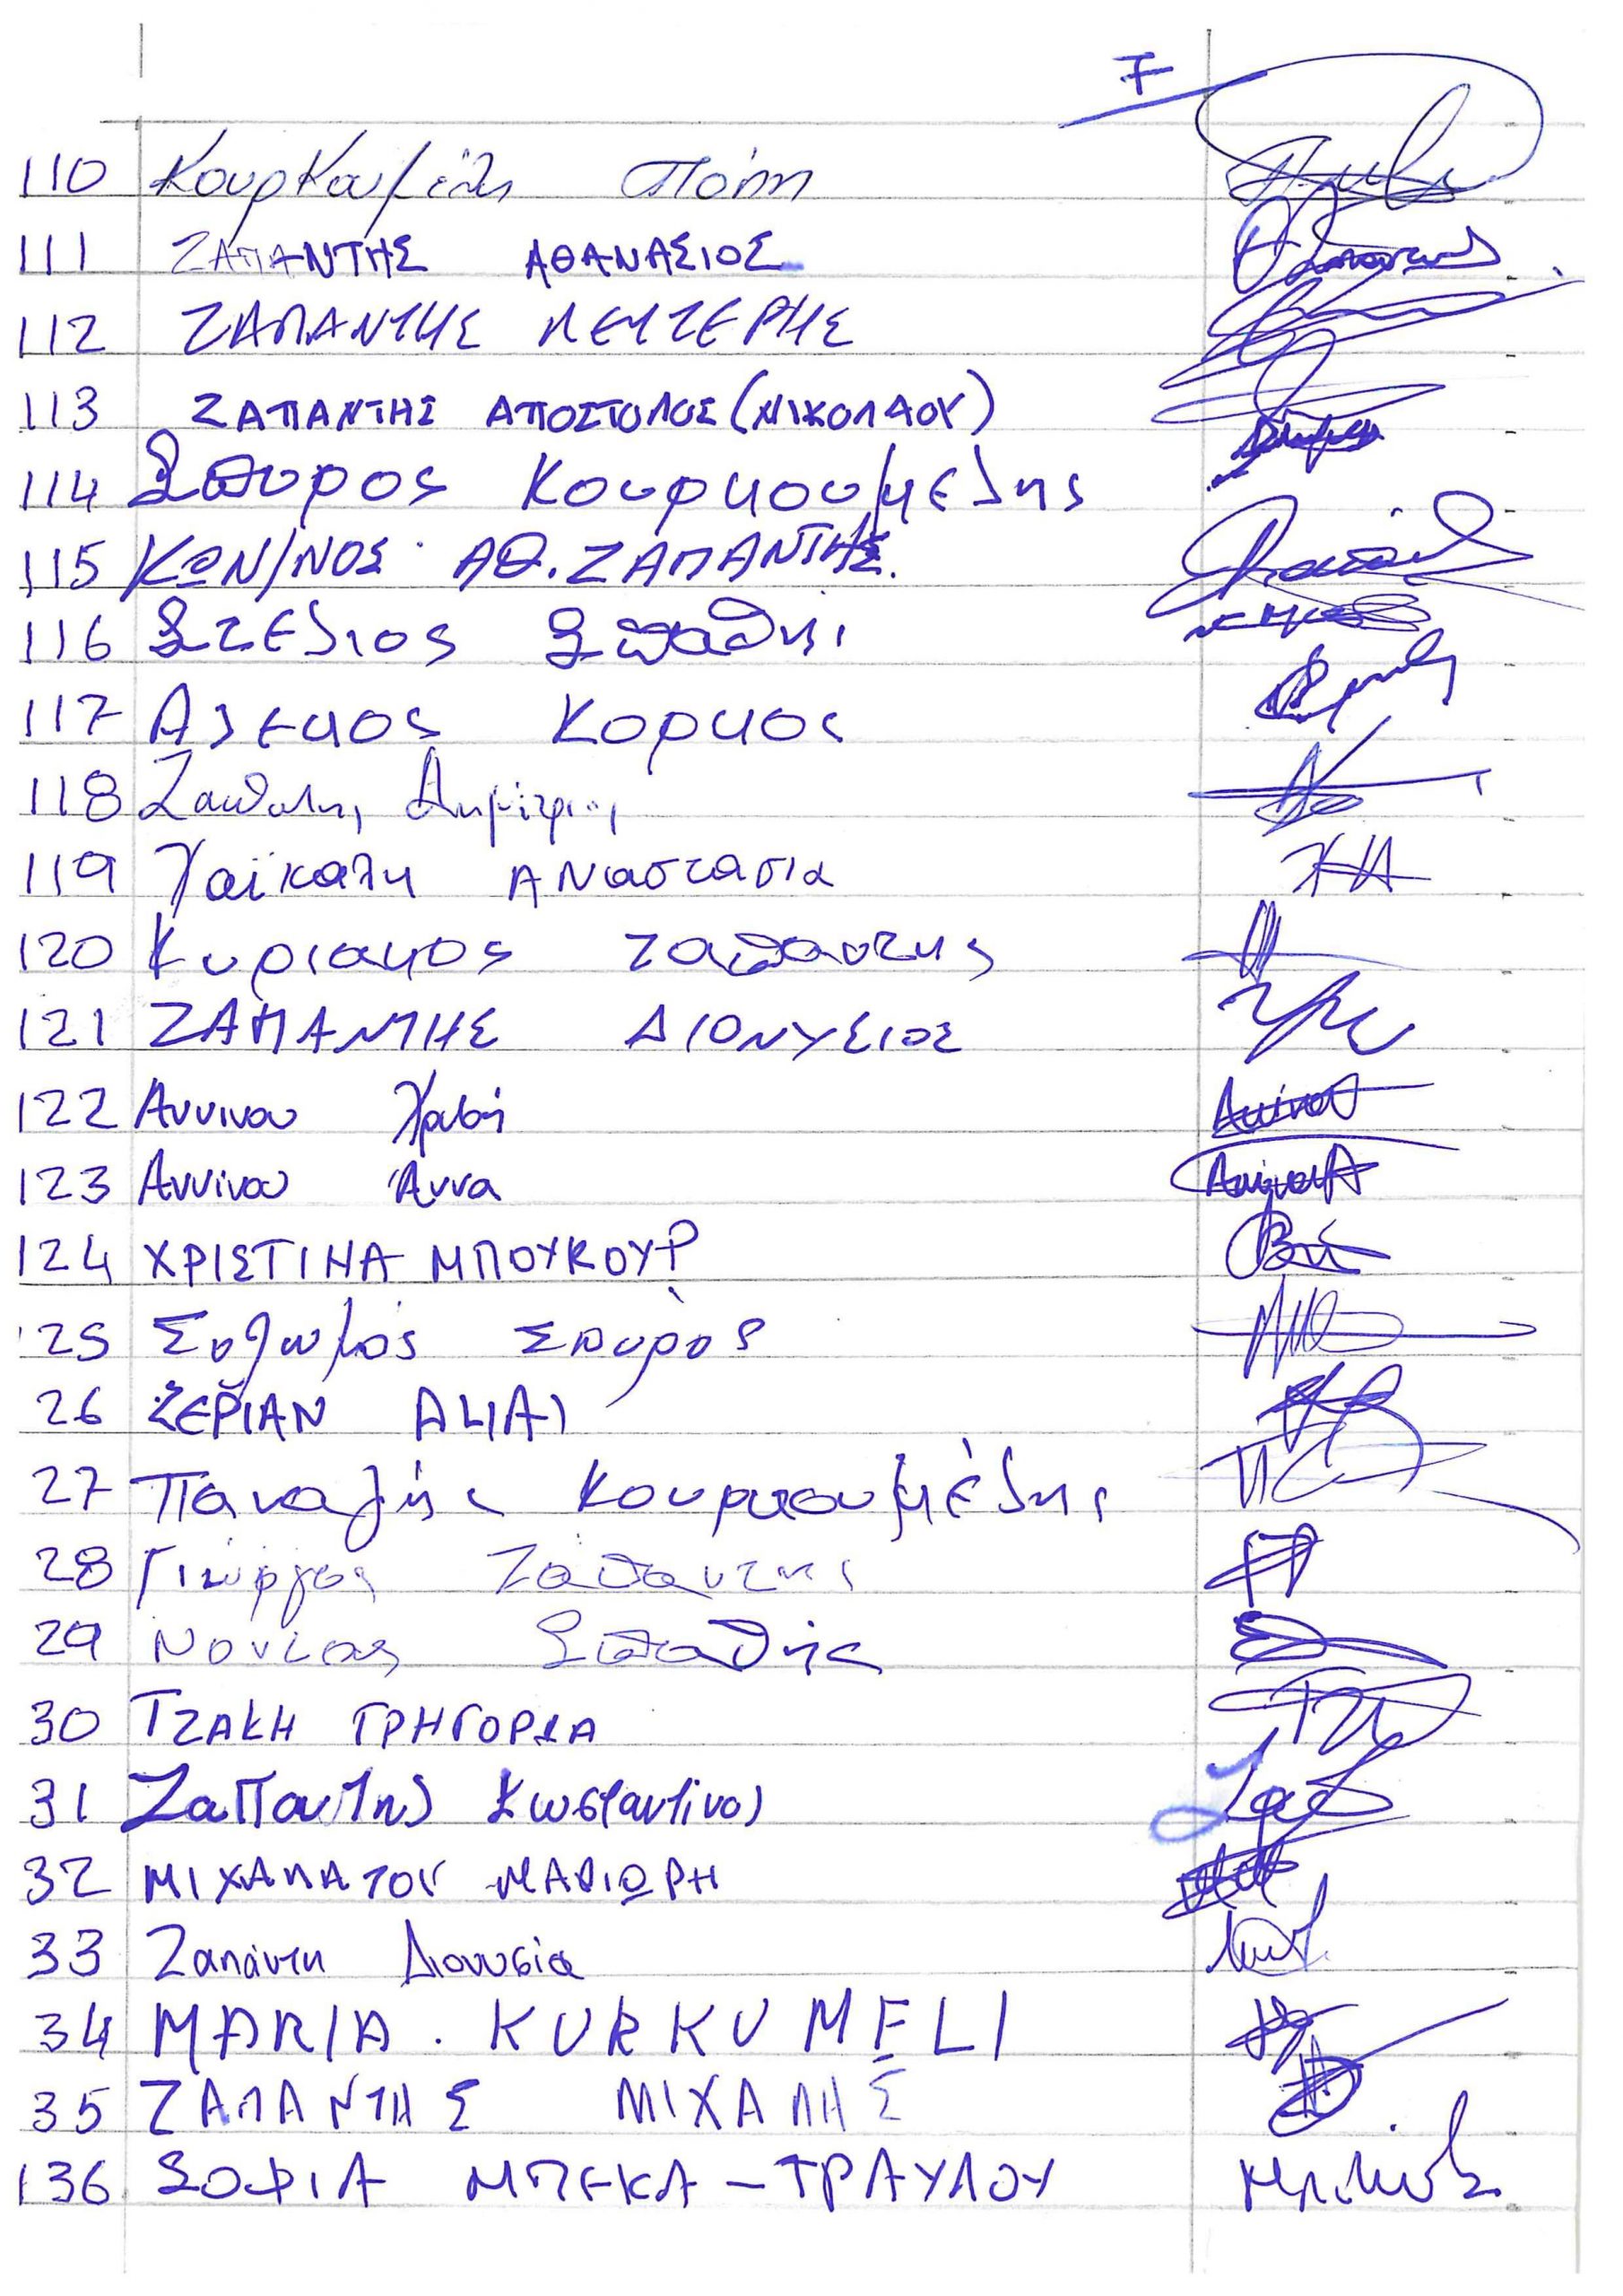 7
110 Κουρκουμέλη Πόπη
111 ΖΑΠΑΝΤΗΣ ΑΘΑΝΑΣΙΟΣ
112 ΖΑΠΑΝΤΗΣ ΛΕΥΤΕΡΗΣ
113 ΖΑΠΑΝΤΗΣ ΑΠΟΣΤΟΛΟΣ (ΝΙΚΟΛΑΟΥ)
114 Σπυρος Κουρκουμελης
115 ΚΩΝ/ΝΟΣ ΑΘ. ΖΑΠΑΝΤΗΣ.
116 Στελιος Σπαθης
117 Αλεκος Κορκος
118 Δημήτριος
119 Χαϊκαλη Αναστασια
120 Κυριακος Ζαπαντης
121 ΖΑΠΑΝΤΗΣ ΔΙΟΝΥΣΙΟΣ
122 Αννινου Χρυσή
123 Αννίνου Άννα
124 ΧΡΙΣΤΙΝΑ ΜΠΟΥΚΟΥΡ
125 Σολωμός Σπυρος
26 ALIAJ
27 Παναγής Κουρκουμέλης
28 Γιώργος Ζαπαντης
29 Νοντας Σπαθής
30 ΤΖΑΚΗ ΓΡΗΓΟΡΙΑ
31 Ζαπαντης Κωσταντίνος
32 ΜΙΧΑΛΑΤΟΥ ΜΑΡΙΩΡΗ
33 Ζαπάντη Διονυσία
34 MARIA. KURKUMELI
35 ΖΑΠΑΝΤΗΣ ΜΙΧΑΛΗΣ
136 ΣΟΦΙΑ ΜΠΕΚΑ - ΤΡΑΥΛΟΥ